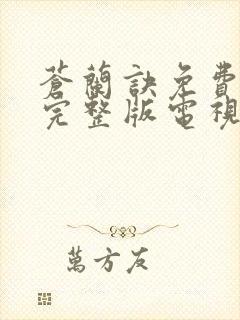 蒼蘭訣免費
完整版電視
萬方友